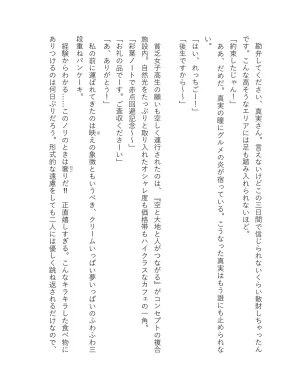 勘弁してください、真実さん。言えないけどこの三日間で信じられないくらい散財しちゃったん
です。こんな高そうなエリアには足も踏み入れられないほど。
「約束したじゃん！」
ああ、だめだ。真実の瞳にグルメの炎が宿っている。こうなった真実はもう誰にも止められな
い。
「はい、れっちごー！」
「後生ですから〜〜」
貧乏女子高生の願いも空しく連行されたのは、『空と大地と人がつながる』がコンセプトの複合
施設内。自然光をたっぷりと取り入れたオシャレ度も価格帯もハイクラスなカフェの一角。
「彩葉ノートで赤点回避記念〜〜」
「お礼の品でーす。ご査収くださーい」
「あ、ありがとう！」
私の前に運ばれてきたのは映えの象徴ともいうべき、クリームいっぱい夢いっぱいのふわふわ三
段重ねパンケーキ。
経験からわかる……このノリのときは奢りだ‼　正直嬉しすぎる。こんなキラキラした食べ物に
ありつけるのは何日ぶりだろう。形式的な遠慮をしても二人には優しく跳ね返されるだけなので、